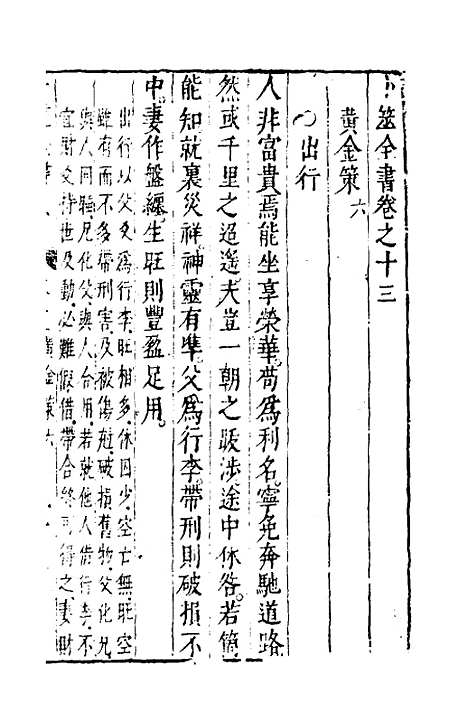 卜筮全書卷之十三
黃金策六
出行
人非富貴焉能坐享榮華。苟爲利名。寧免奔馳道路
然或千里之迢遥。夫豈一朝之跋涉途中休咎。若箇
能知就裏災祥。神靈有準。父爲行李。帶刑則破損不
中。妻作盤纏。生旺則豐盈足用。
出行以父爻爲行李旺相多。休囚少。空亡無。旺空
雖有而不多帶刑害及被傷尅。破損舊物父化兄
與人同睡。兄化父與人合用。若就他人借行李。不
宜財爻持世及動。必難假借。帶合終可得之妻財
黃金策六